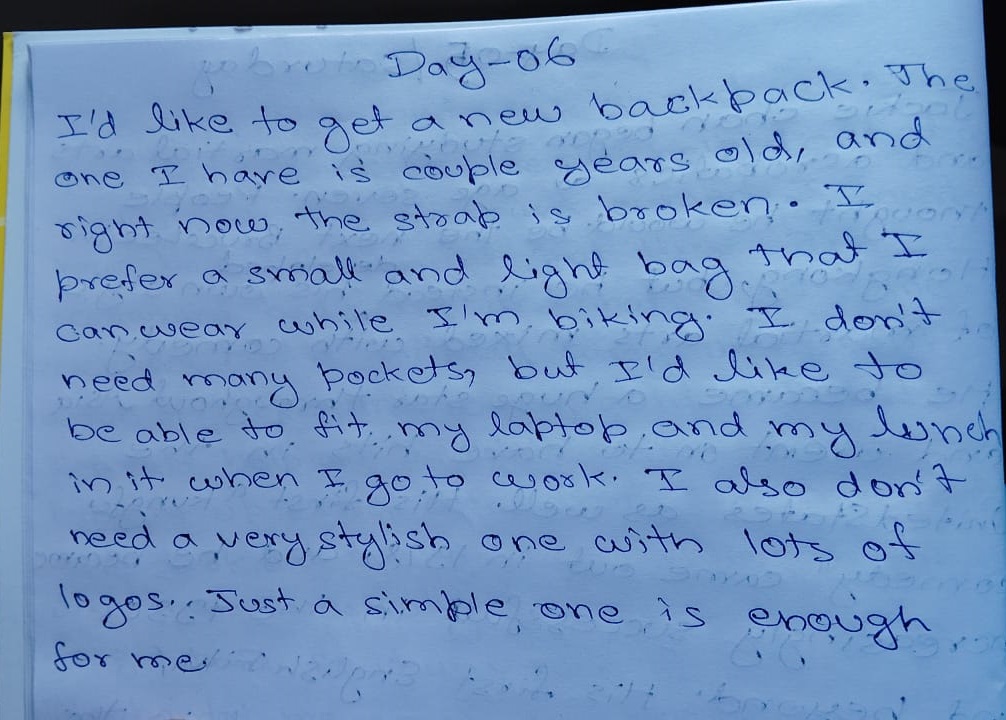 Day-06
I'd like to get a new backpack. The
one I have is couple years old, and
right now, the strap is broken. I
prefer a small and light bag that I
can wear while I'm biking. I don't
need many pockets, but I'd like to
be able to fit my laptop and my lunch
in it when I go to work. I also don't
need a very stylish one with lots of
logos. Just a simple one is enough
for me.